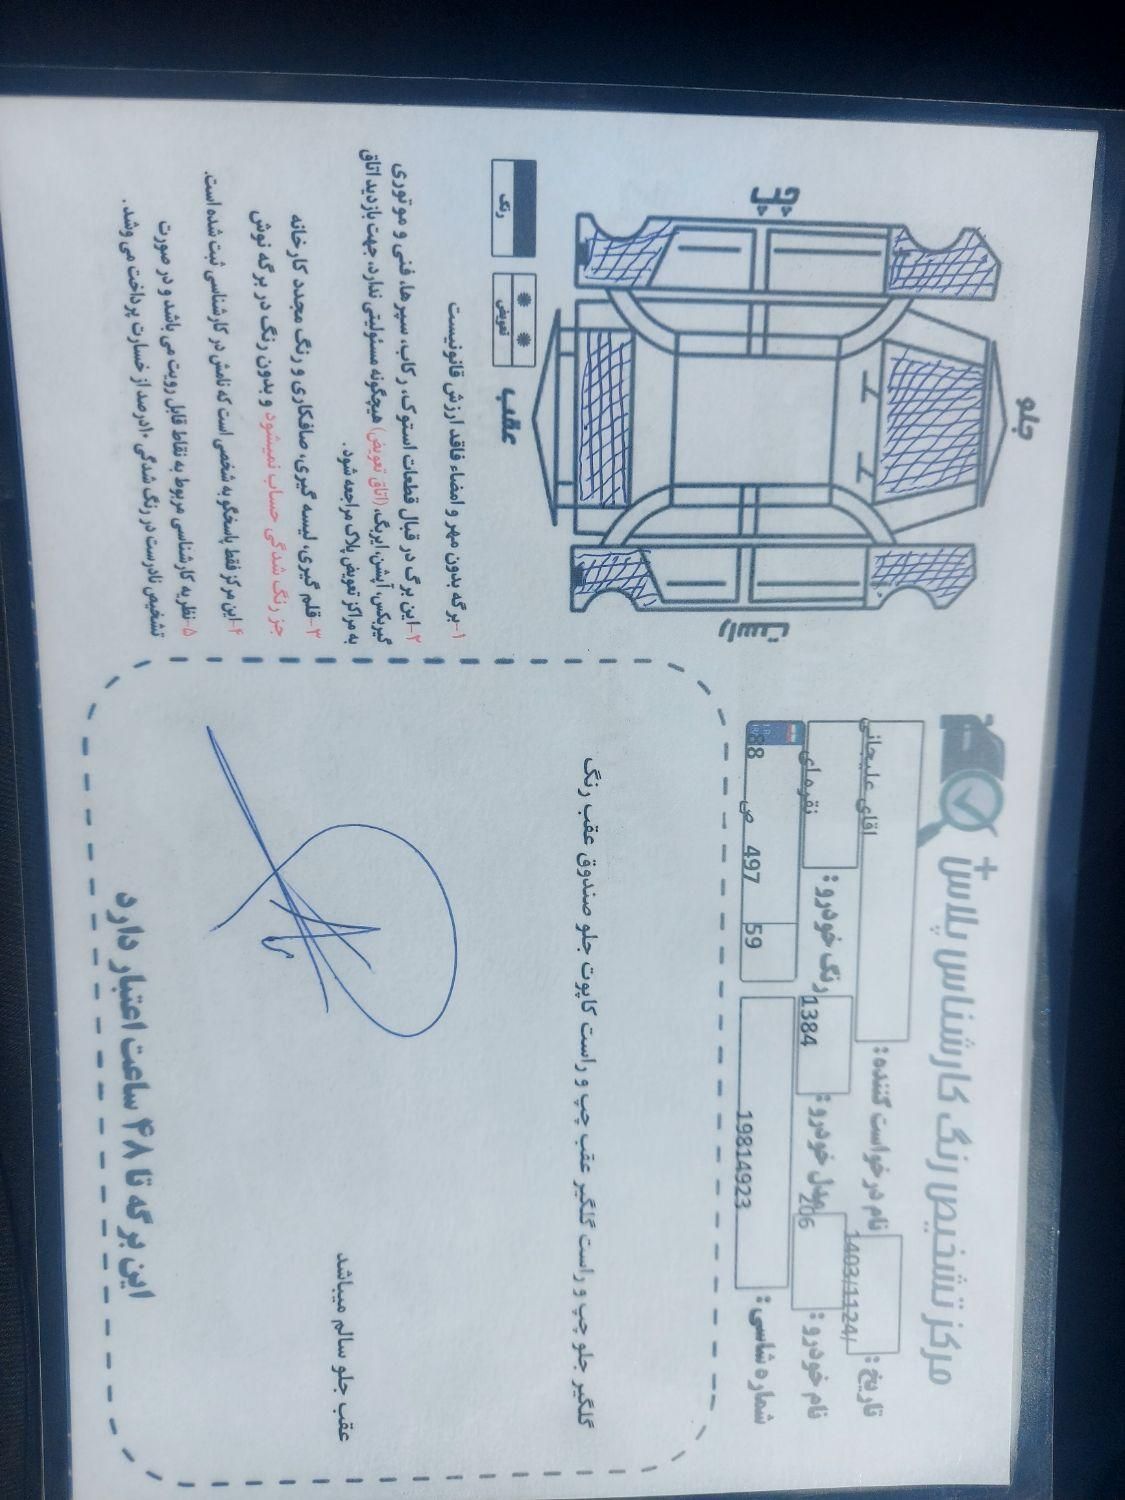 مرکز تشخیص رنگ کارشناس پلاس+
تاریخ: 1403/1124/
نام درخواست کننده: اقای علیجانی
نام خودرو: 206
مدل خودرو: 1384
رنگ خودرو: نقره‌ای
شماره شاسی: 19814923
88 ص 497 59
گلگیر جلو چپ و راست گلگیر عقب چپ و راست کاپوت جلو صندوق عقب رنگ
عقب جلو سالم میباشد
این برگه تا ۴۸ ساعت اعتبار دارد
جلو
چپ
راست
عقب
رنگ
تعویض
۱-برگه بدون مهر و امضاء فاقد ارزش قانونیست
۲-این برگ در قبال قطعات استوک، رکاب، سپرها، فنی و موتوری
گیربکس، آپشن، ایربگ، (اتاق تعویض) هیچگونه مسئولیتی ندارد، جهت بازدید اتاق
به مراکز تعویض پلاک مراجعه شود.
۳-قلم گیری، لیسه گیری، صافکاری و رنگ مجدد کارخانه
جز رنگ شدگی حساب نمیشود و بدون رنگ در برگه نوش
۴-این مرکز فقط پاسخگو به شخصی است که نامش در کارشناسی ثبت شده است.
۵-نظریه کارشناسی مربوط به نقاط قابل رویت می باشد و در صورت
تشخیص نادرست در رنگ شدگی ۱۰درصد از خسارت پرداخت می وشد.